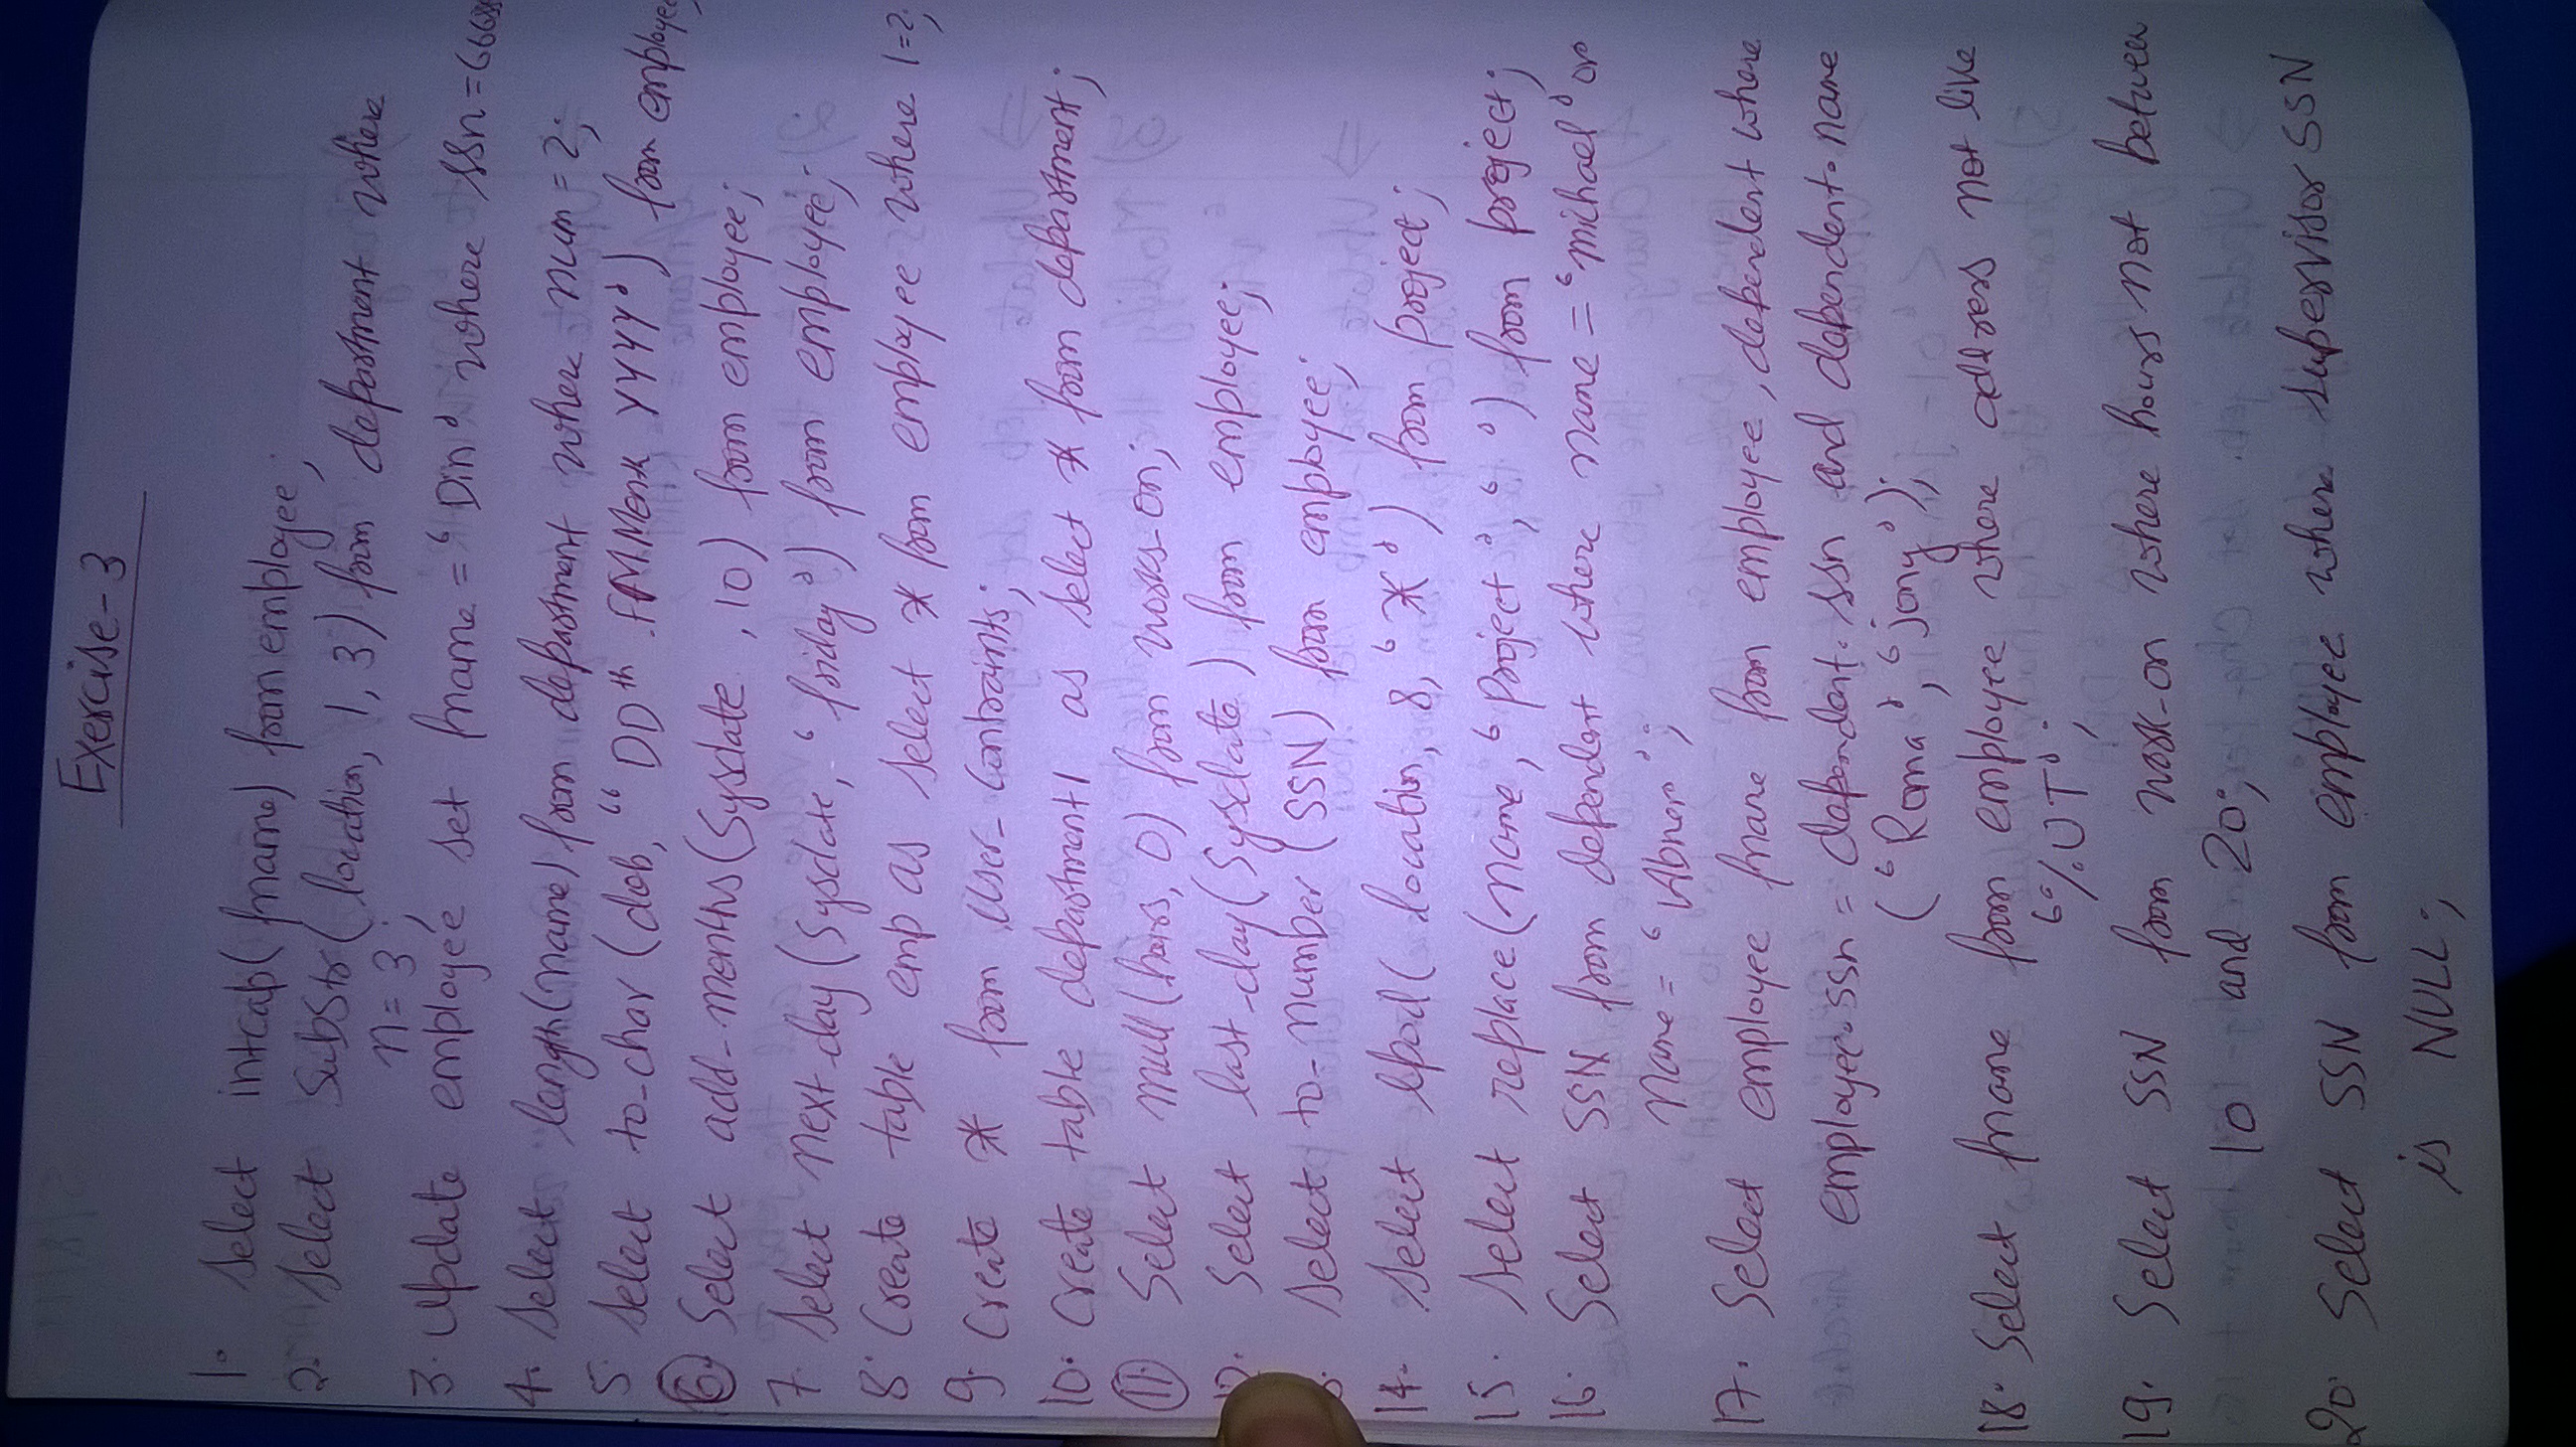 Exercise-3
1. Select intcap(fname) from employee;
2. Select Substr(location, 1, 3) from department where
n = 3;
3. Update employee set fname = 'Din' where ssn = 666
4. Select langth(mname) from department where num = 2;
5. Select to-char (dob, "DDth FMMonth YYYY') from employee,
6. Select add-months (Sysdate, 10) from employee;
7. Select next-day (Sysdate, 'friday') from employee;
8. Create table emp as select * from employee where 1=2;
9. Create * from user-contraints;
10. Create table department1 as select * from department;
11. Select null (hours, 0) from works-on;
12. Select last-day (Sysdate) from employee;
Select to-number (SSN) from employee;
14. Select lpad( location, 8, '*') from project;
15. Select replace (name, 'project', ' ') from project;
16. Select SSN from dependent where name = 'mihael' or
name = 'Abner';
17. Select employee fname from employee, dependent where
employee.ssn = dependent.ssn and dependent.name
('Roma', 'jony');
18. Select fname from employee where address not like
'%UT';
19. Select SSN from work-on where hours not between
10 and 20;
20. Select SSN from employee where supervisor SSN
is NULL;